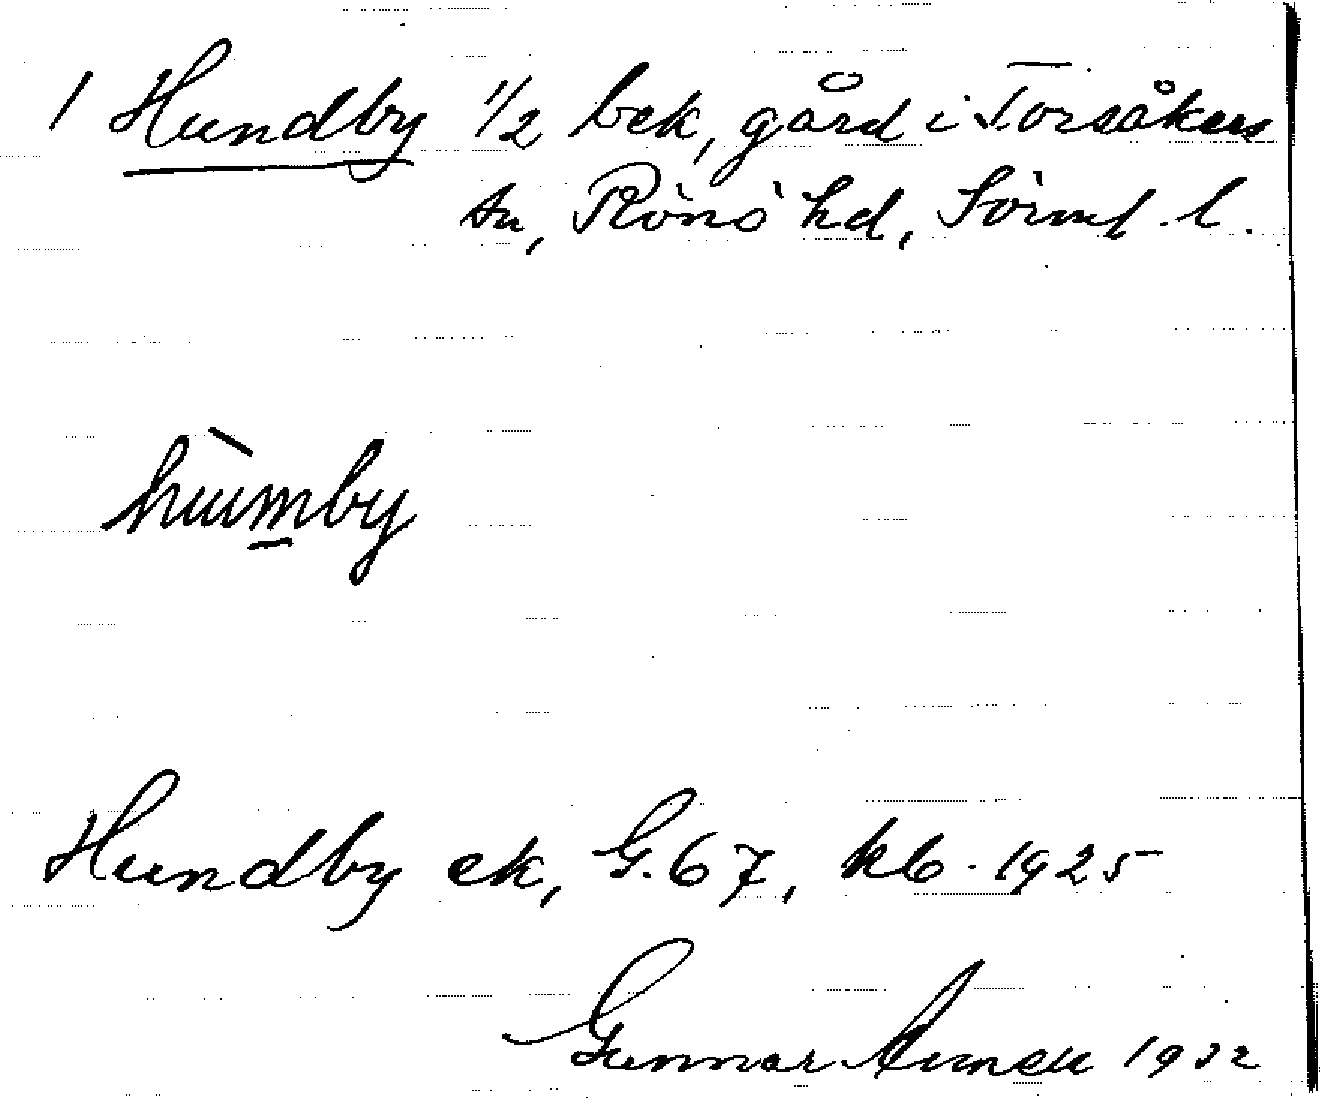 1 Hundby 1/2 bek, gård i Torsåkers
sn, Rönö hd, Sörml. l.
hùmby
Hundby ek, G. 67, kb. 1925
Gunnar 1932